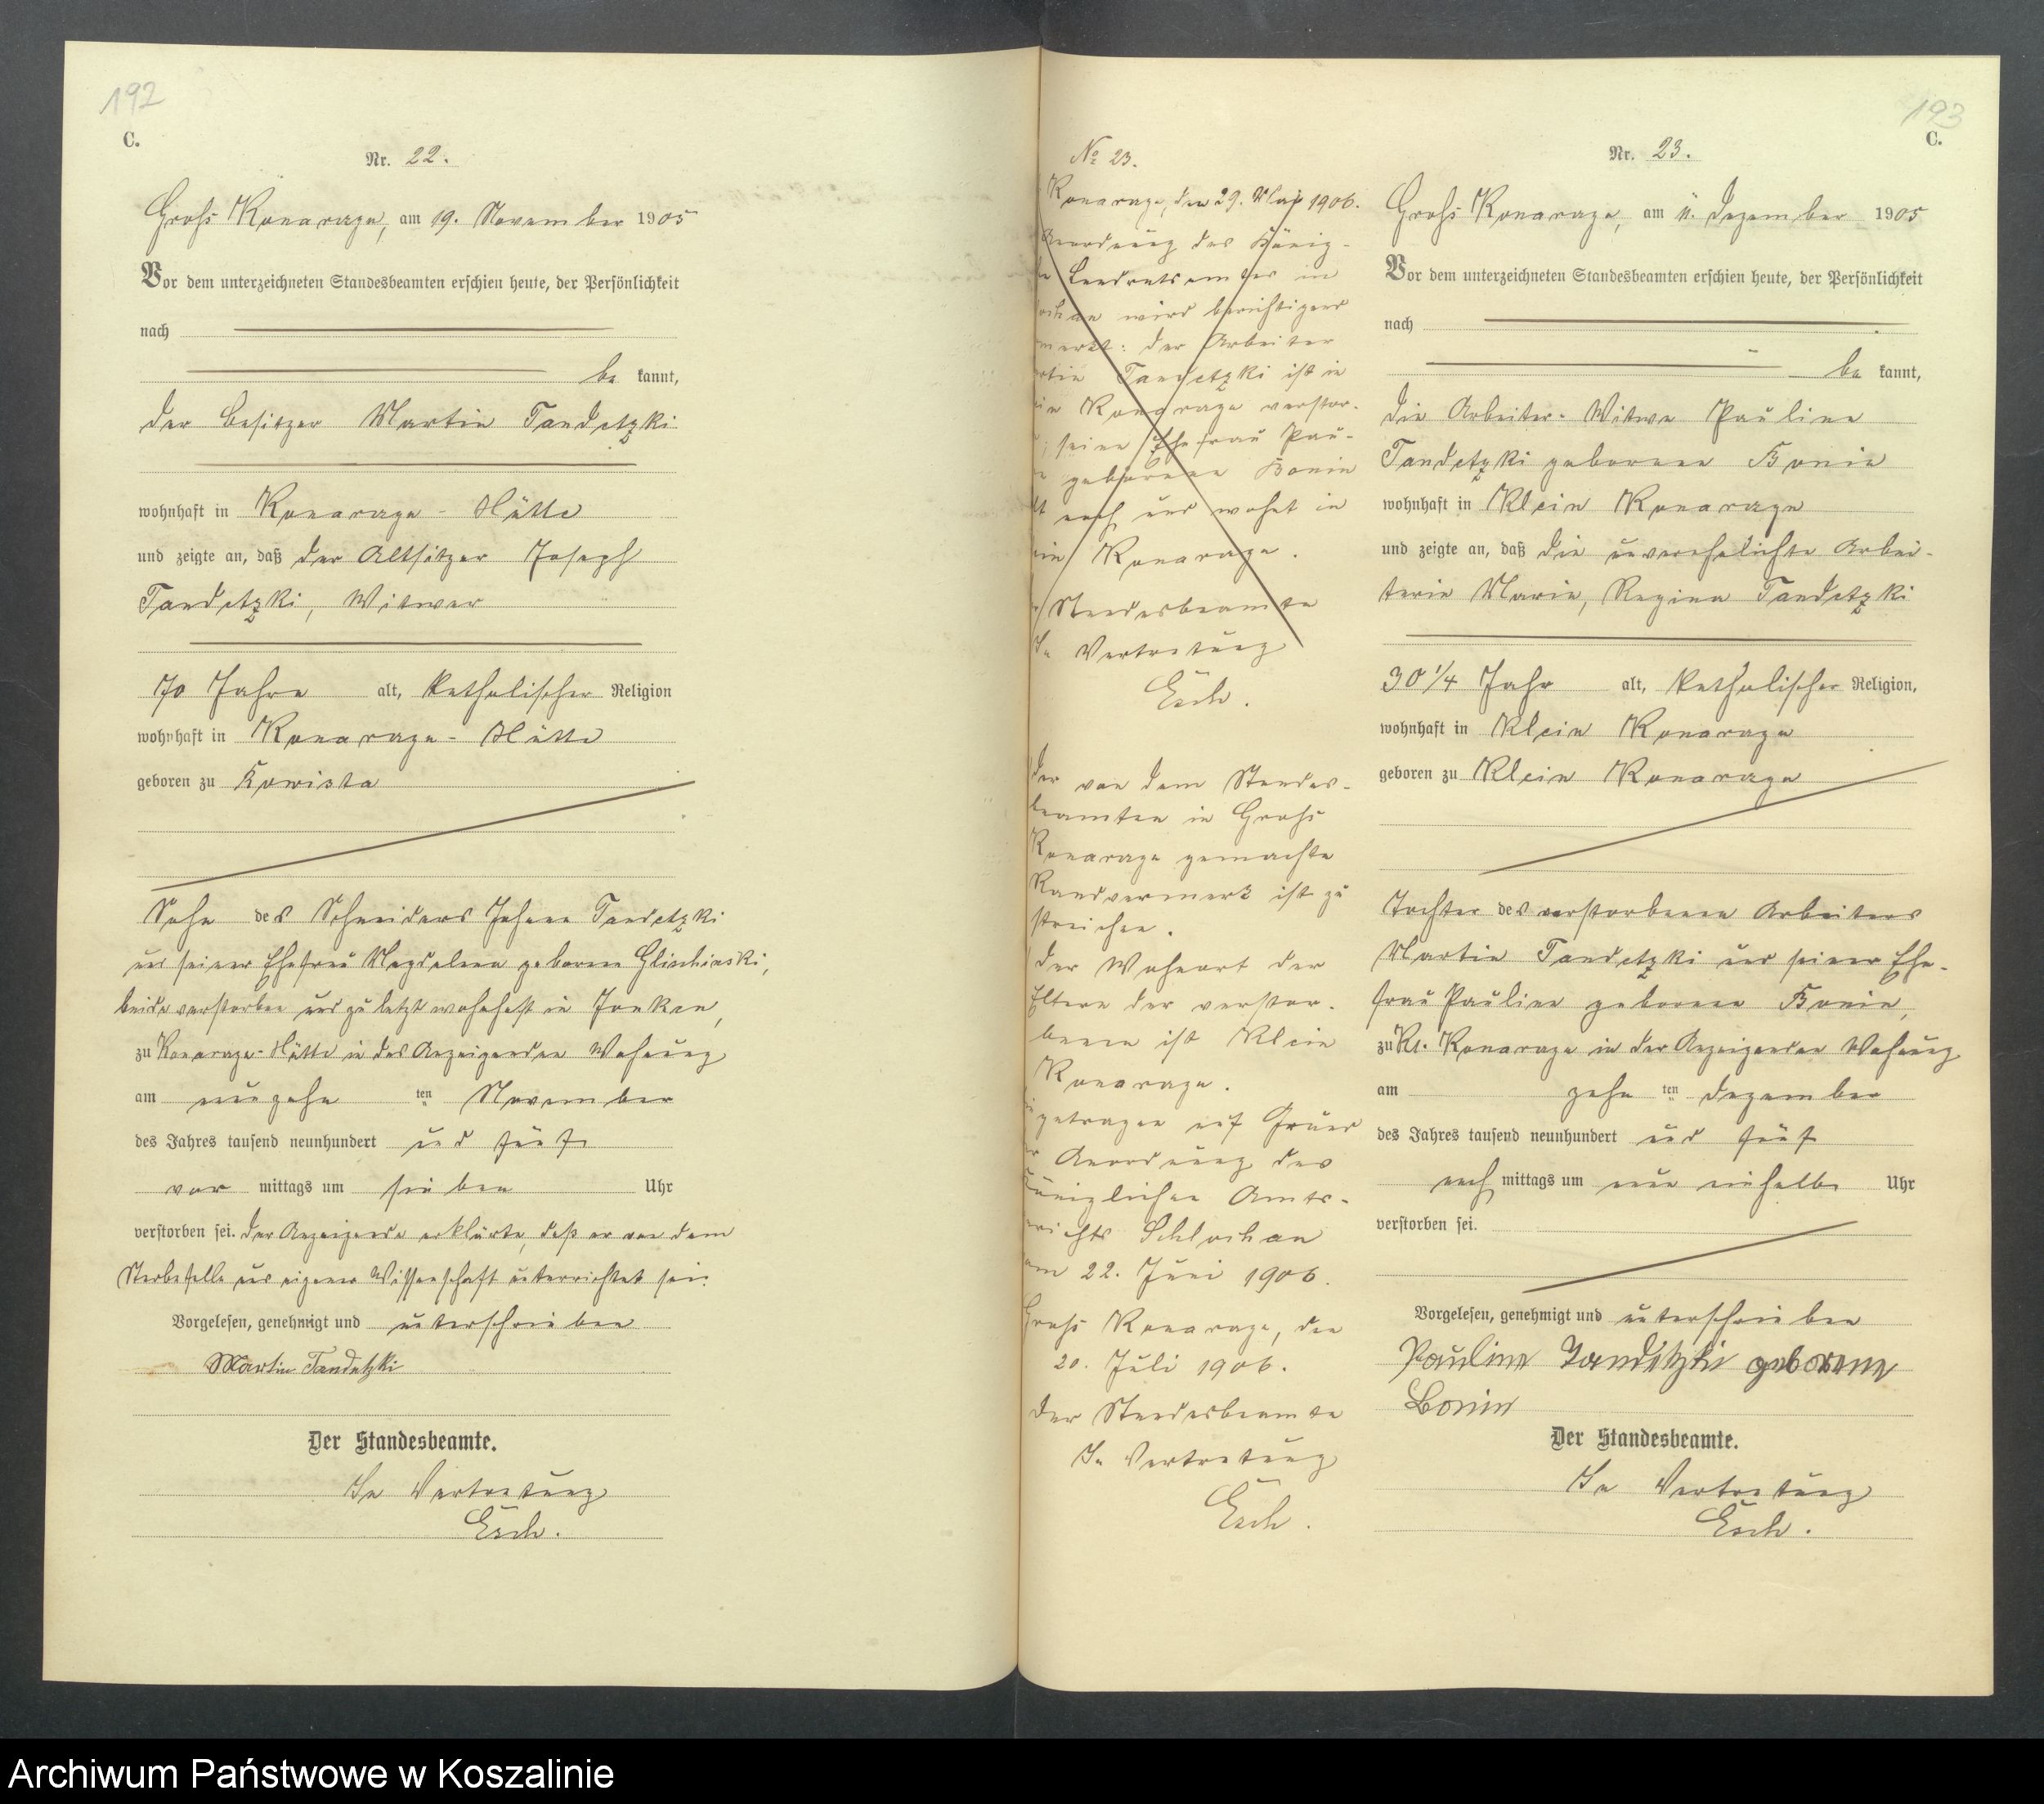 192
C.
Nr. 22.
Groß Konarzyn, am 19. November 1905
Vor dem unterzeichneten Standesbeamten erschien heute, der Persönlichkeit
nach
be kannt,
der Besitzer Martin Tandetzki
wohnhaft in Konarzyn-Hütte
und zeigte an, daß der Altsitzer Joseph
Tandetzki, Witwer
70 Jahre alt, katholischer Religion
wohnhaft in Konarzyn-Hütte
geboren zu
Sohn des Schneiders Johann Tandetzki
und seiner Ehefrau Magdalena geborene Glischinski,
beide verstorben und zuletzt wohnhaft in
zu Konarzyn-Hütte in des Anzeigenden Wohnung
am neunzehn ten November
des Jahres tausend neunhundert und fünf
vor mittags um sieben Uhr
verstorben sei. Der Anzeigende erklärte, daß er von dem
Sterbefalle aus eigener Wissenschaft unterrichtet sei.
Vorgelesen, genehmigt und unterschrieben
Martin Tandetzki
Der Standesbeamte.
In Vertretung
Esch.
No 23.
Konarzyn, den 29. May 1906.
Anordnung des König-
Landratsamtes in
wird berichtigend
merkt: Der Arbeiter
Tandetzki ist in
Konarzyn verstor-
seine Ehefrau Pau-
geborene Bonin
noch und wohnt in
Konarzyn.
Standesbeamte
In Vertretung
Esch.
Der von dem Standes-
beamten in Groß
Konarzyn gemachte
Randvermerk ist zu
streichen.
Der Wohnort der
Eltern der verstor-
benen ist Klein
Konarzyn.
Eingetragen auf Grund
der Anordnung des
Königlichen Amts-
gerichts Schlochau
vom 22. Juni 1906.
Groß Konarzyn, den
20. Juli 1906.
Der Standesbeamte
In Vertretung
Esch.
193
C.
Nr. 23.
Groß Konarzyn, am 11. Dezember 1905
Vor dem unterzeichneten Standesbeamten erschien heute, der Persönlichkeit
nach
be kannt,
die Arbeiter-Witwe Pauline
Tandetzki geborene Bonin
wohnhaft in Klein Konarzyn
und zeigte an, daß die unverehelichte Arbei-
terin Marie, Regina Tandetzki
30 1/4 Jahr alt, katholischer Religion,
wohnhaft in Klein Konarzyn
geboren zu Klein Konarzyn
Tochter des verstorbenen Arbeiters
Martin Tandetzki und seiner Ehe-
frau Pauline geborene Bonin,
zu Kl. Konarzyn in der Anzeigenden Wohnung
am zehn ten Dezember
des Jahres tausend neunhundert und fünf
nach mittags um neun einhalb Uhr
verstorben sei.
Vorgelesen, genehmigt und unterschrieben
Pauline Tanditzki geborene
Bonin
Der Standesbeamte.
In Vertretung
Esch.
Archiwum Państwowe w Koszalinie